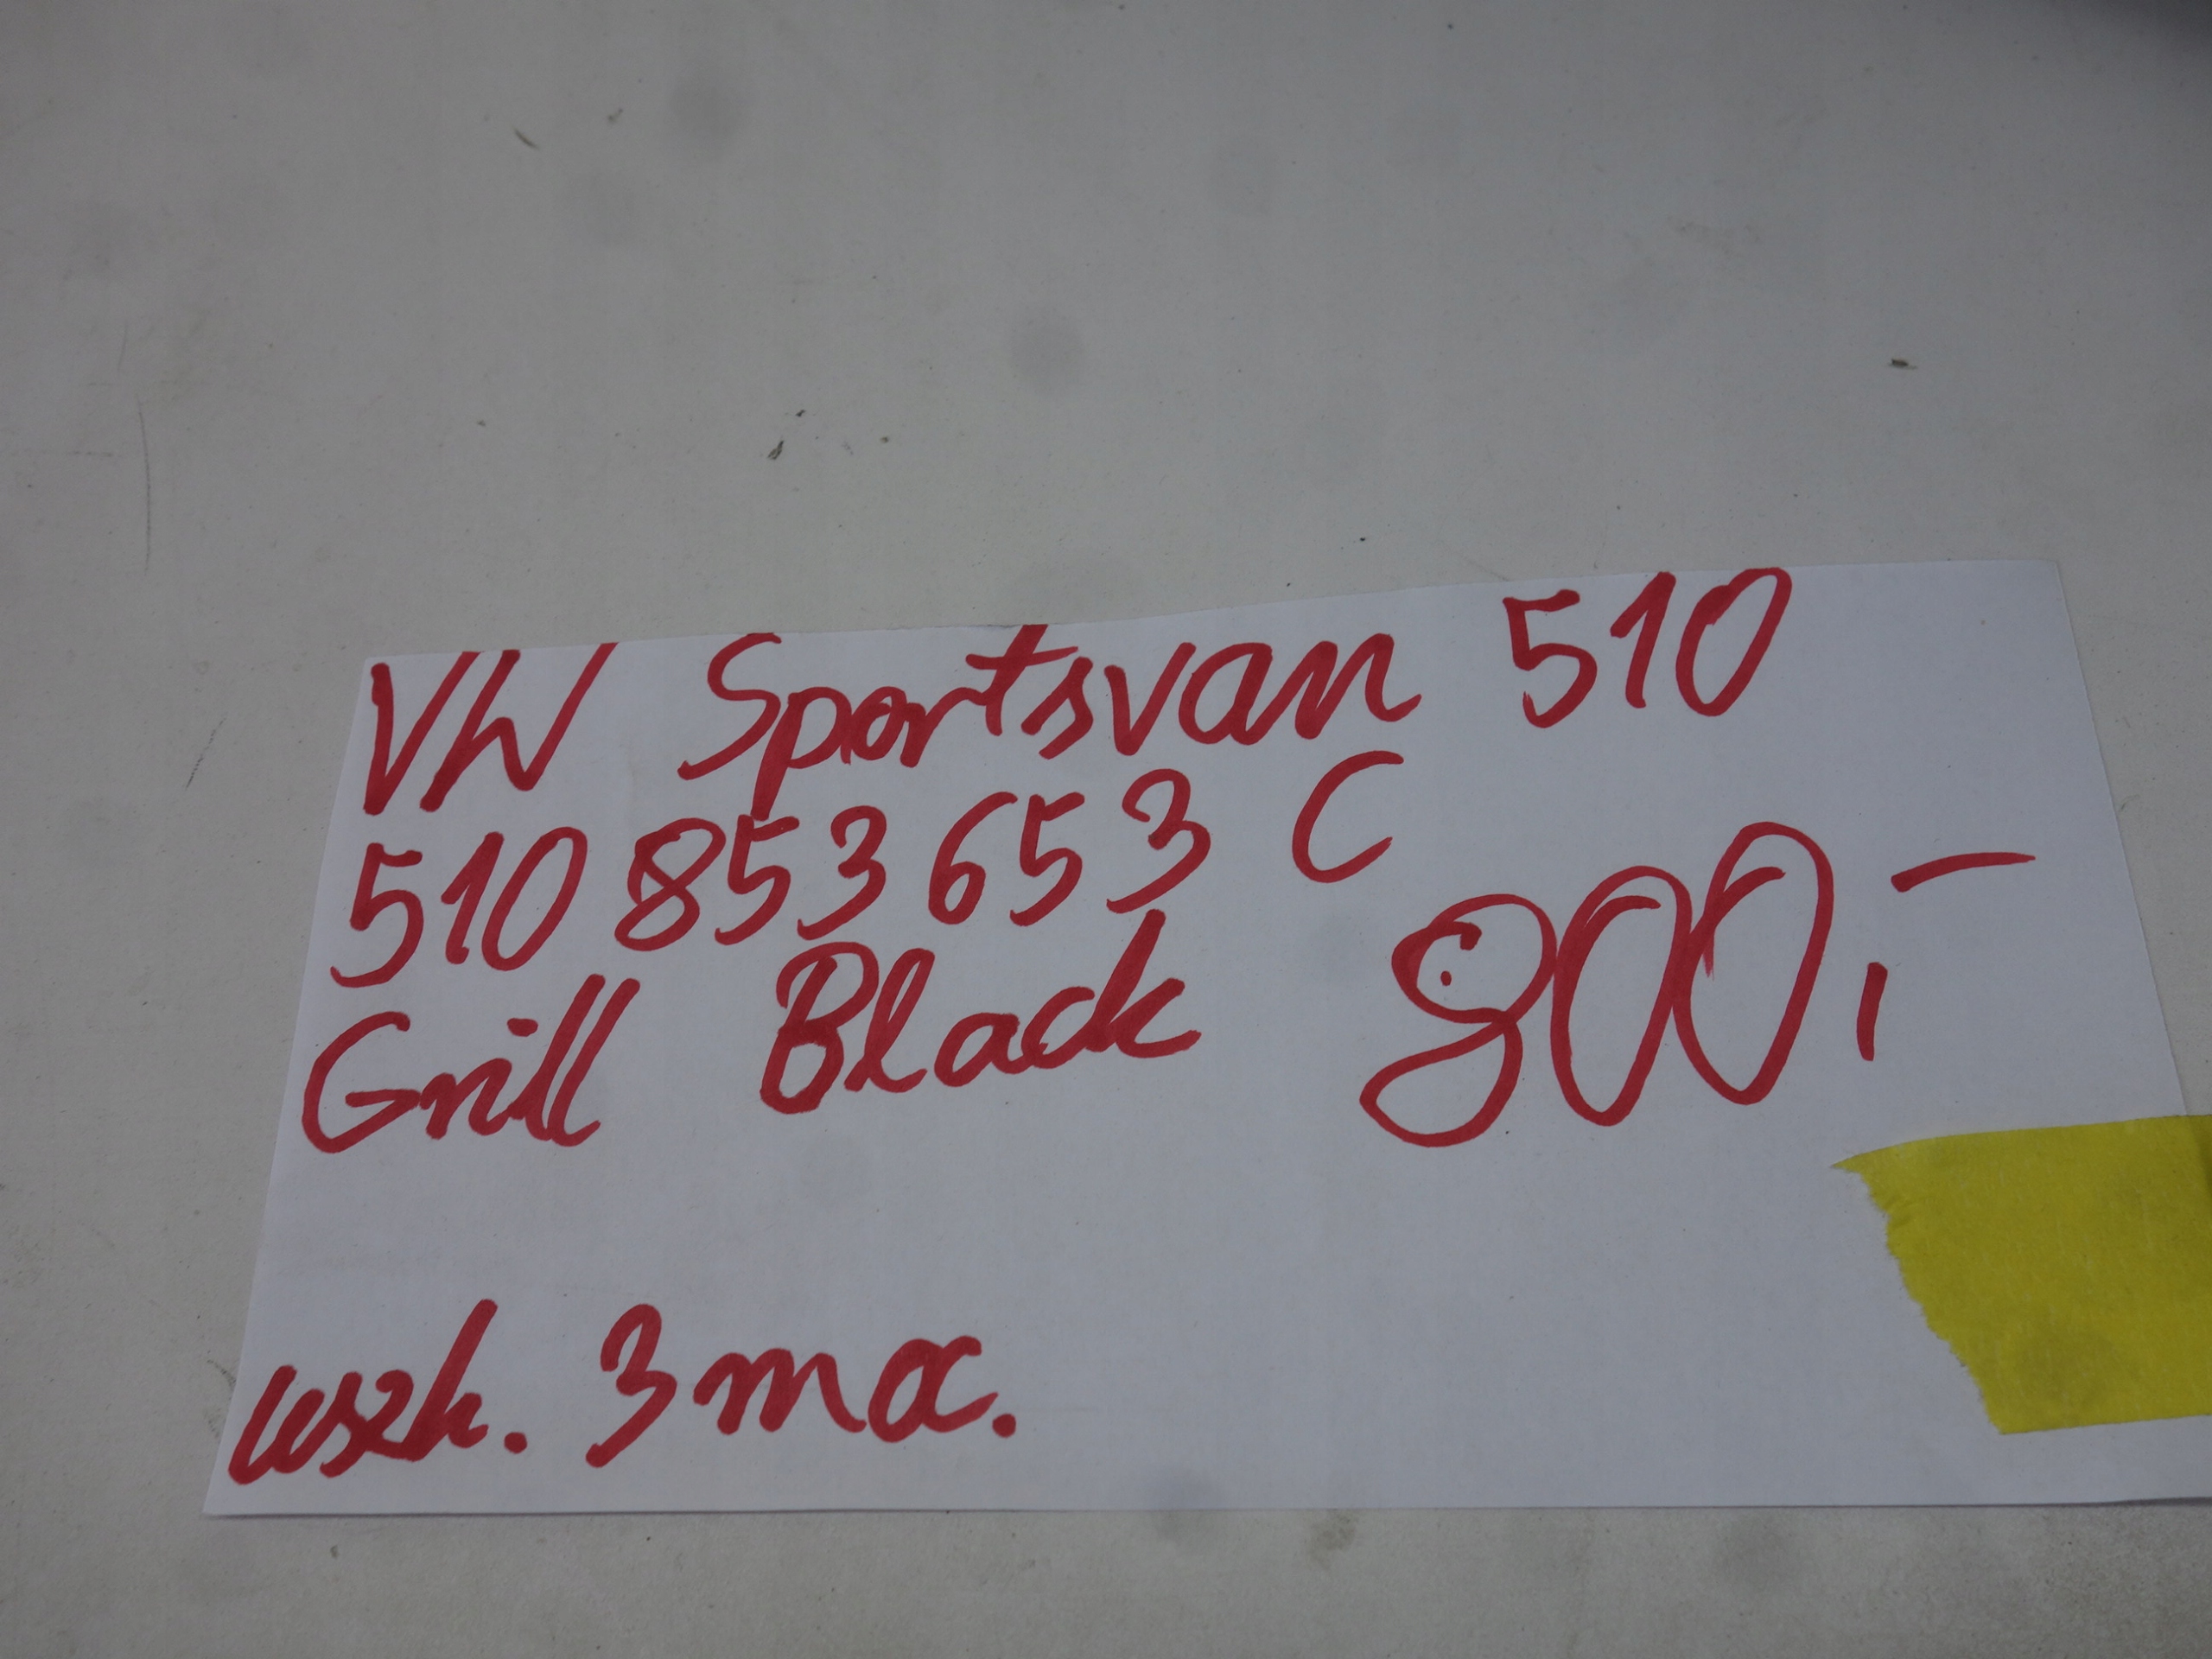 VW Sportsvan 510
510 853 653 C
Grill Black 800,-
wszk. 3 mc.